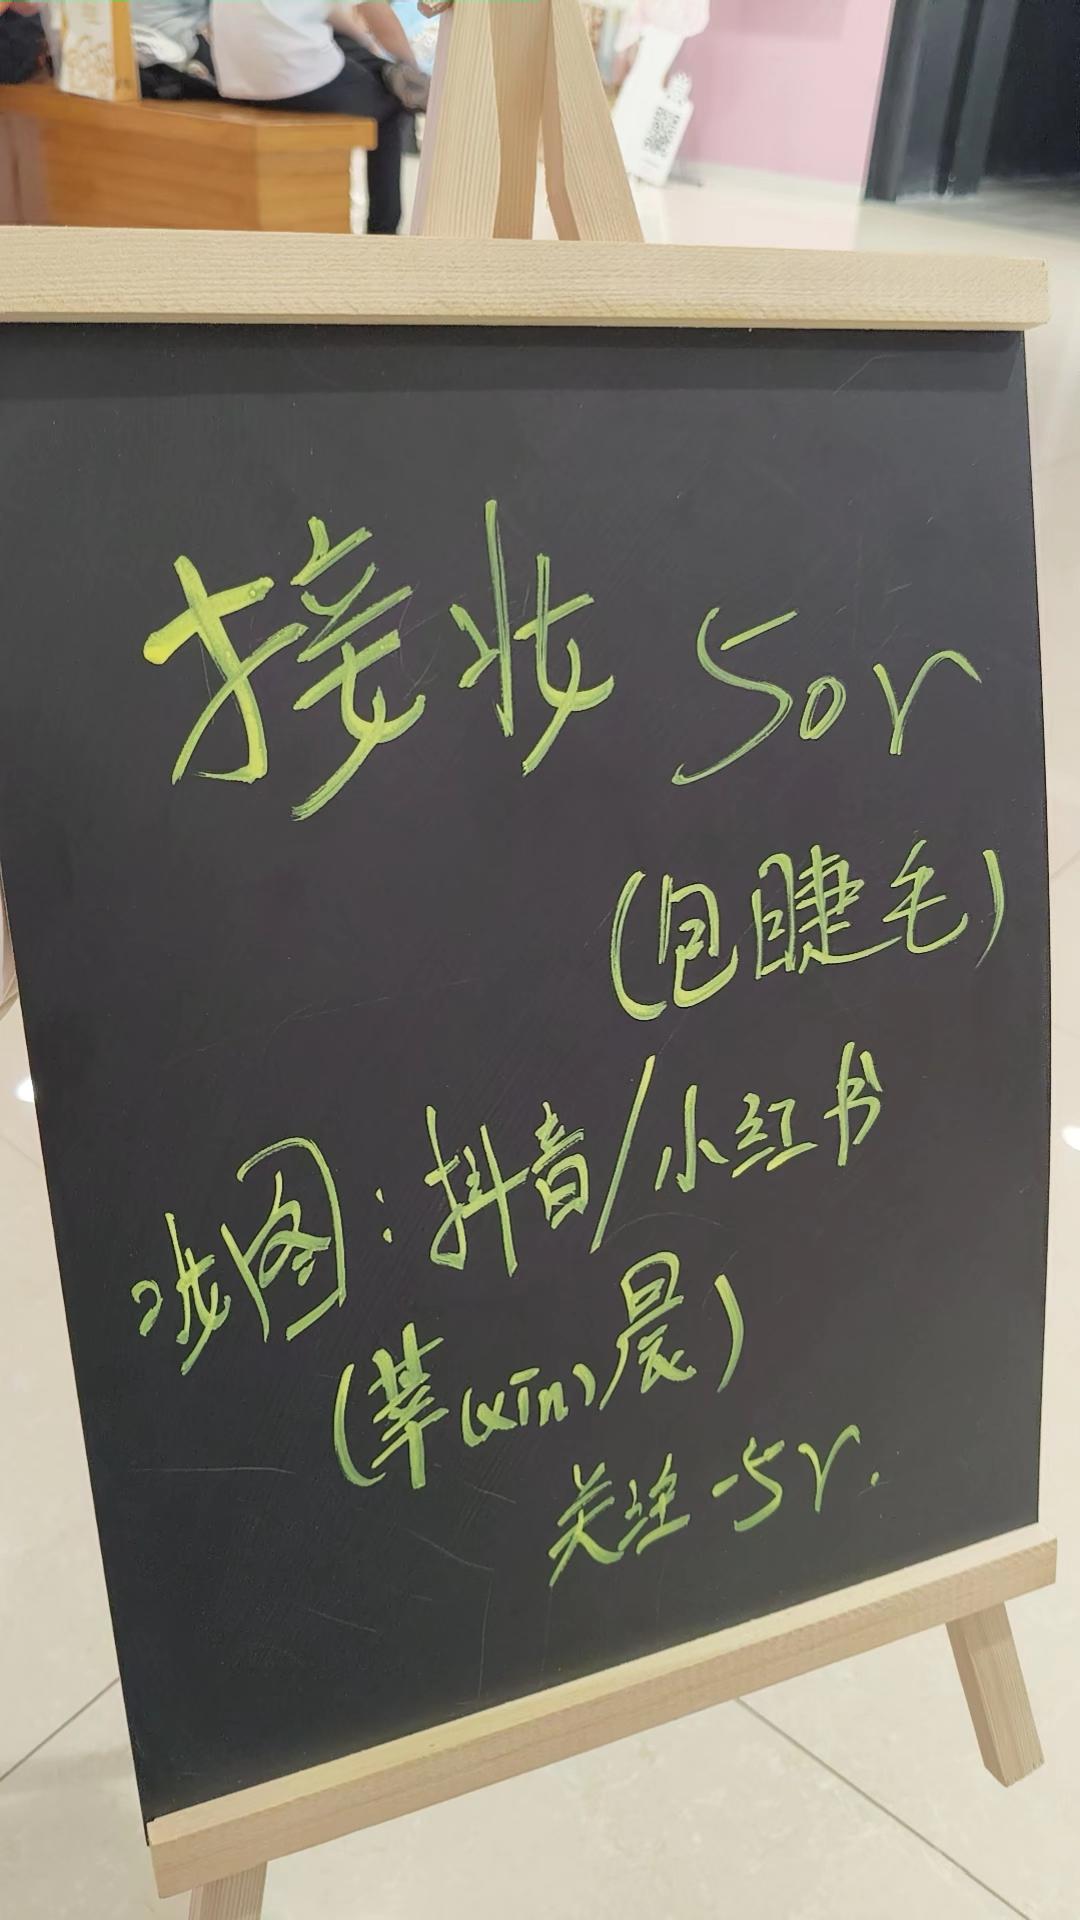 接妆 50r
(包睫毛)
戏图:抖音/小红书
(莘(xin)晨)
关注-5r.